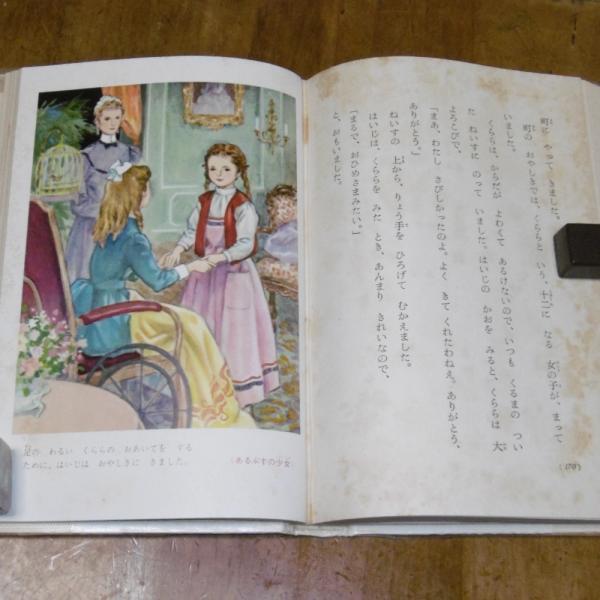 足の わるい くららの おあいてを する
ために、はいじは おやしきに きました。
(あるぷすの少女
町に やって きました。
町の おやしきでは、くららと いう、十二に なる 女の子が、まって
いました。
くららは、からだが よわくて あるけないので、いつも くるまの つい
た ねいすに のって いました。はいじの かおを みると、くららは 大
よろこびで、
「まあ、わたし さびしかったのよ。よく きて くれたわねえ。ありがとう、
ありがとう。」
ねいすの 上から、りょう手を ひろげて むかえました。
はいじは、くららを みた とき、あんまり きれいなので、
「まるで、おひめさまみたい。」
と、おもいました。